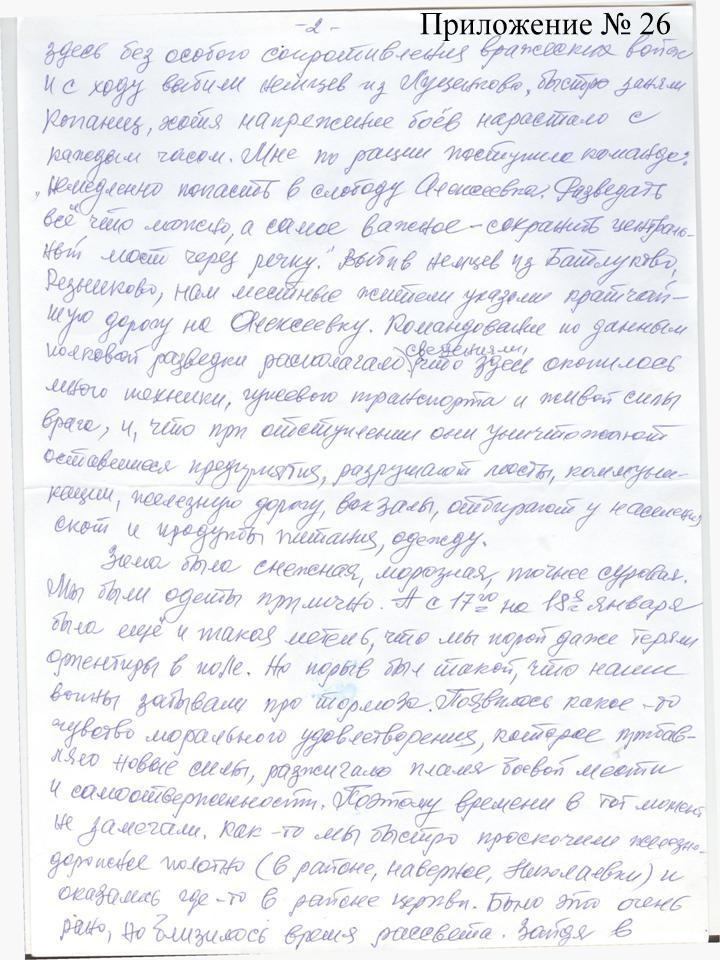 Приложение № 26
- 2 -
здесь без особого сопротивления вражеских войск
и с ходу выбили немцев из Луценково, быстро заняли
Копанец, хотя напряжение боёв нарастало с
каждым часом. Мне по рации поступила команда:
"немедленно попасть в слободу Алексеевка. Разведать
всё что можно, а самое важное - сохранить централь-
ный мост через речку." Выбив немцев из Батлуково,
Резниково, нам местные жители указали кратчай-
шую дорогу на Алексеевку. Командование по данным
полковой разведки располагало сведениями, что здесь скопилось
много техники, гужевого транспорта и живой силы
врага, и, что при отступлении они уничтожают
оставшиеся предприятия, разрушают мосты, коммуни-
кации, железную дорогу, вокзалы, отбирают у населения
скот и продукты питания, одежду.
Зима была снежная, морозная, точнее суровая.
Мы были одеты прилично. А с 17го на 18е января
была ещё и такая метель, что мы порой даже теряли
ориентиры в поле. Но порыв был такой, что наши
воины забывали про тормоза. Появилось какое-то
чувство морального удовлетворения, которое прибав-
ляло новые силы, разжигало пламя боевой мести
и самоотверженности. Поэтому времени в тот момент
не замечали. Как-то мы быстро проскочили железно-
дорожное полотно (в районе, наверное, Николаевки) и
оказались где-то в районе церкви. Было это очень
рано, но близилось время рассвета. Зайдя в